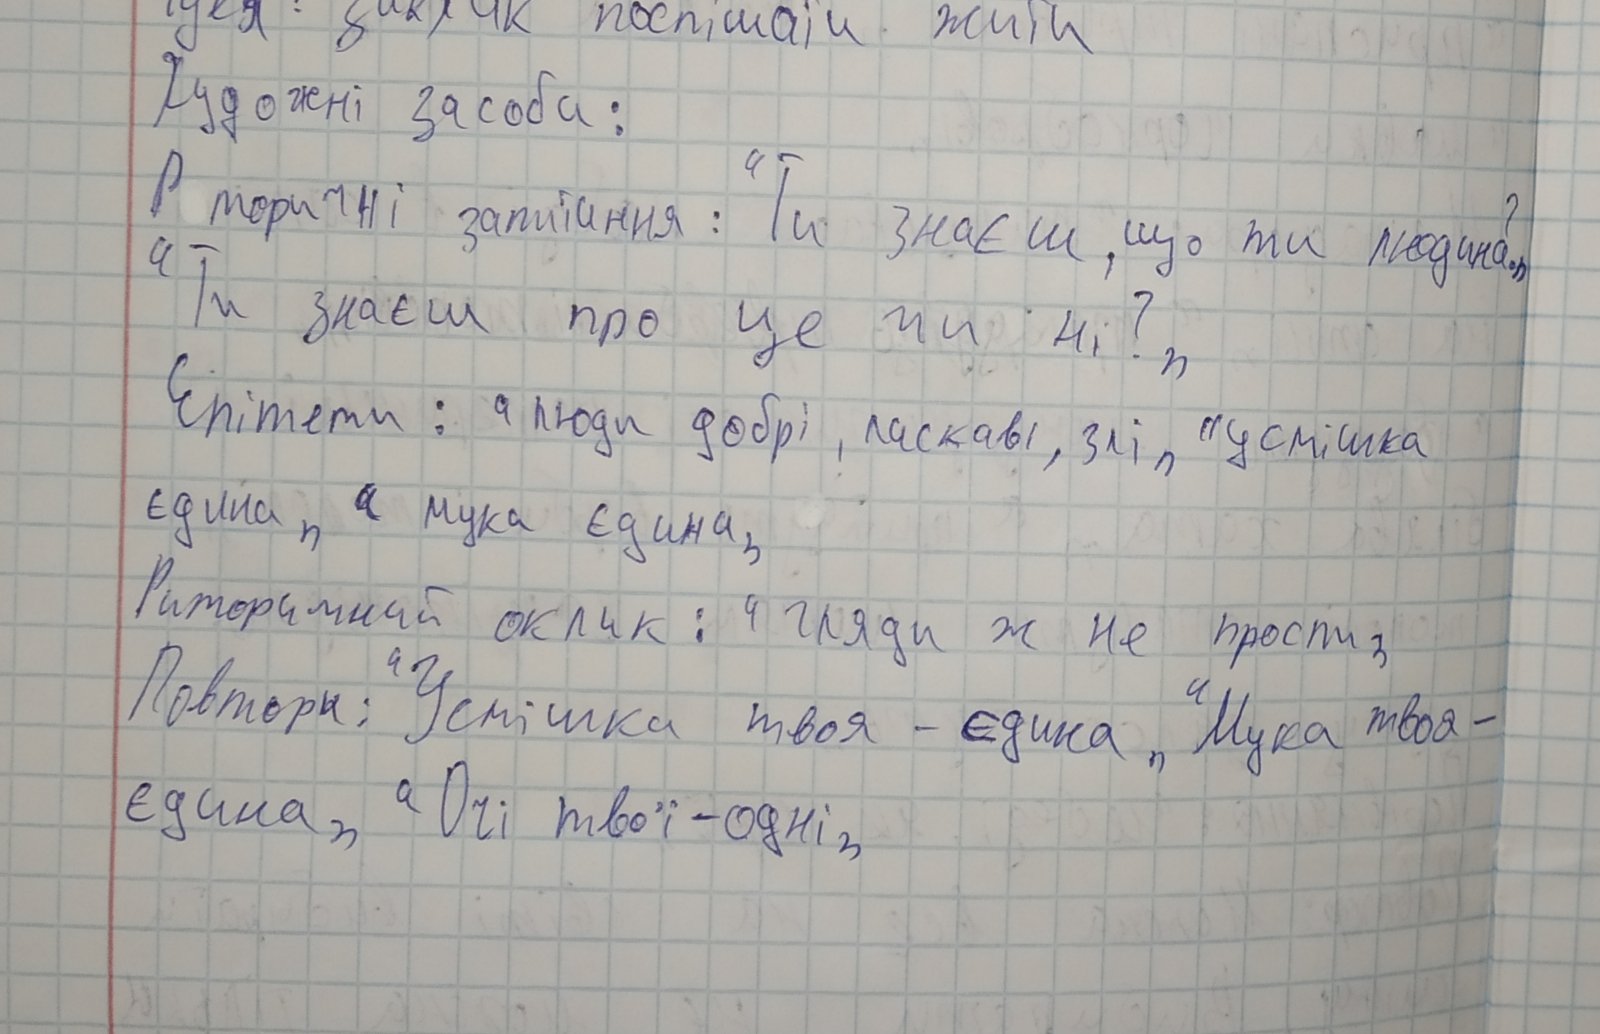 ідея: заклик поспішати жити
Художні засоби:
Р торичні запитання: "Ти знаєш, що ти людина?"
"Ти знаєш про це чи ні?"
Епітети: "люди добрі, ласкаві, злі" "усмішка
єдина" "мука єдина"
Риторичний оклик: "гляди ж не проспи"
Повтори: "Усмішка твоя - єдина" "Мука твоя -
єдина" "Очі твої - одні"